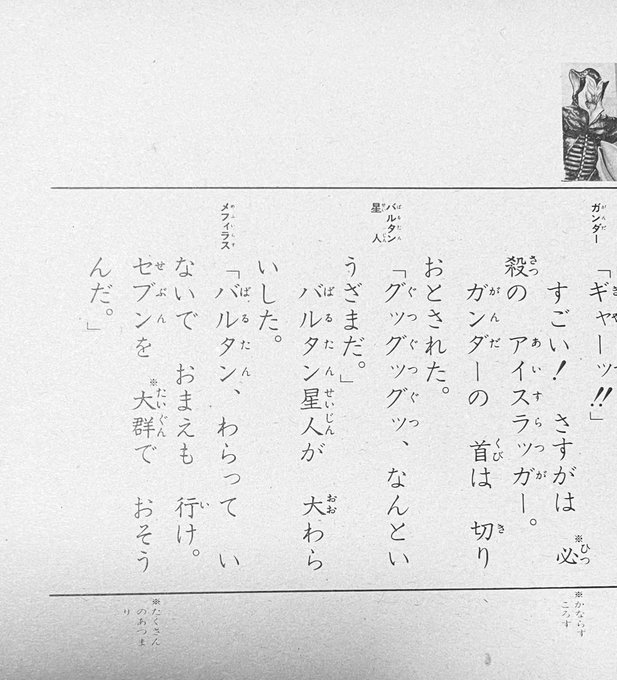 ガンダー
「ギャーッ!!」
すごい! さすがは ※必
殺の アイスラッガー。
ガンダーの 首は 切り
おとされた。
バルタン
星人
「グッグッグッ、なんとい
うざまだ。」
バルタン星人が 大わら
いした。
メフィラス
「バルタン、わらって い
ないで おまえも 行け。
セブンを ※大群で おそう
んだ。」
※かならず
ころす
※たくさん
のあつま
り